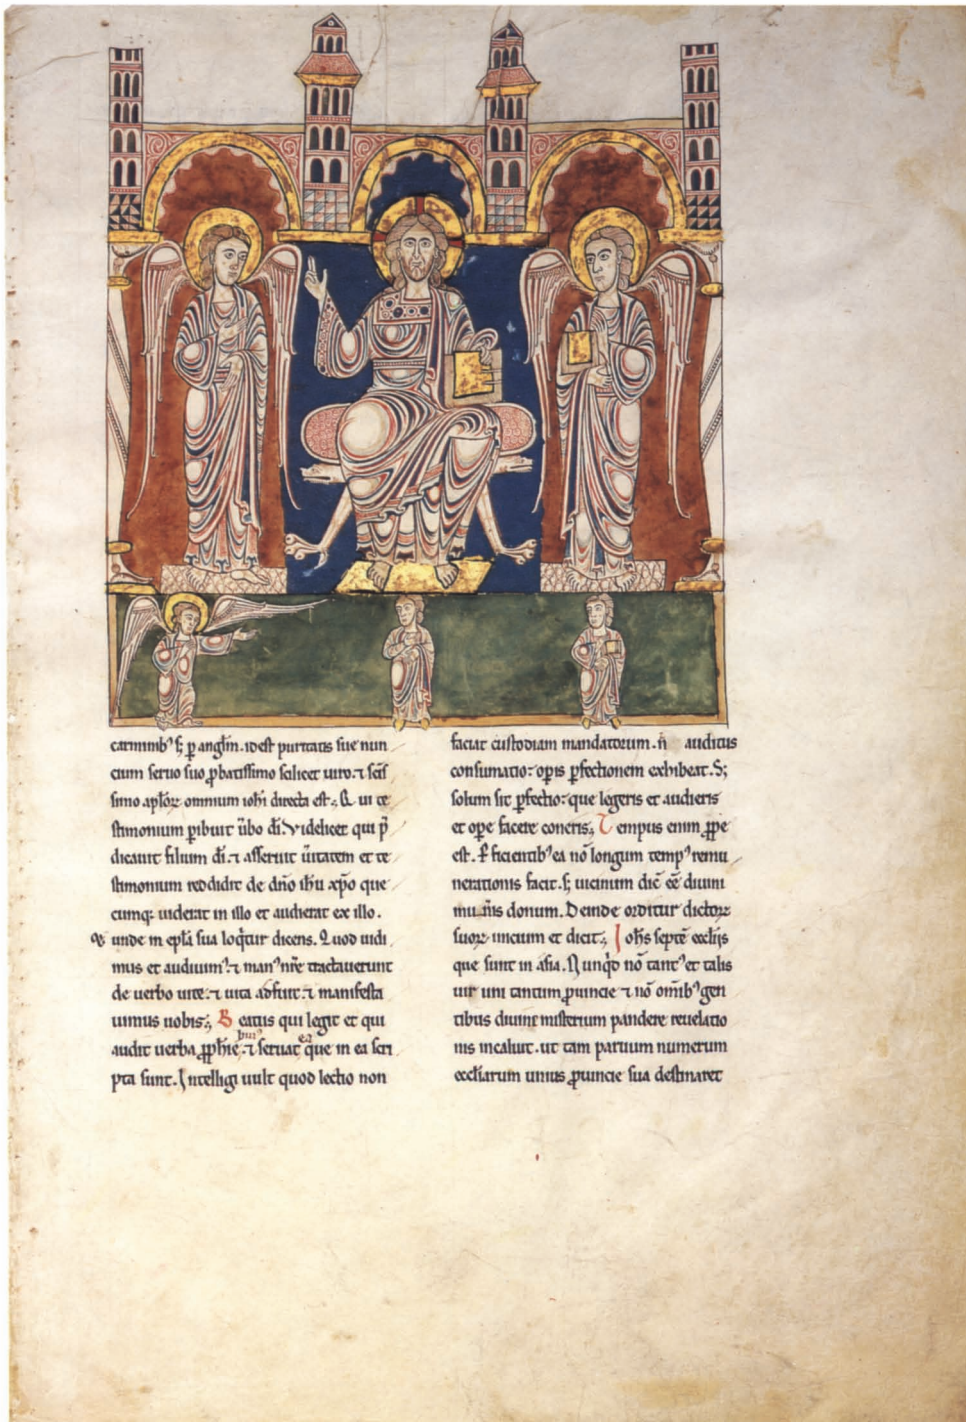 carminib᾽ ſ; ꝑ angl̄m. id eſt puritatis ſue nun
cium ſeruo ſuo ꝓbatiſſimo ſcilicet uiro. ⁊ ſc̄iſ
ſimo apl̄oꝝ omnium ioh̄i directa eſt; Qui te
ſtimonium ꝑibuit ūbo dī. Videlicet qui p̄
dicauit filium dī. ⁊ aſſeruit ūitatem et te
ſtimonium reddidit de dn̄o ih̄u xp̄o que
cumq; uiderat in illo et audierat ex illo.
unde in epl̄a ſua loq̄tur dicens. Quod uidi
mus et audiuim᾽. ⁊ man᾽ nr̄e tractauerunt
de uerbo uite. ⁊ uita adfuit. ⁊ manifeſta
uimus uobis; Beatus qui legit et qui
audit uerba ꝓph̄ie. ⁊ ſeruat ea que in ea ſcri
pta ſunt. Intelligi uult quod lectio non
faciat cuſtodiam mandatorum. n̄ auditus
conſumatio. opis ꝑfectionem exhibeat. S;
ſolum ſit ꝑfectio. que legeris et audieris
et ope facere coneris; Tempus enim ꝓpe
eſt. Ꝑficientib᾽ ea nō longum temp᾽ remu
nerationis facit. ſ; uicinum dic̄ eē diuini
mun̄is donum. Deinde orditur dictoꝝ
ſuoꝝ uncium et dicit; Ioh̄s ſeptē eccl̄iis
que ſunt in aſia. Nunq̄d nō tant᾽ et talis
uir uni tantum ꝓuincie ⁊ nō om̄ib᾽ gen
tibus diuini miſterium pandere reuelatio
nis incaluit. ut tam paruum numerum
eccl̄iarum unius ꝓuincie ſua deſtinaret